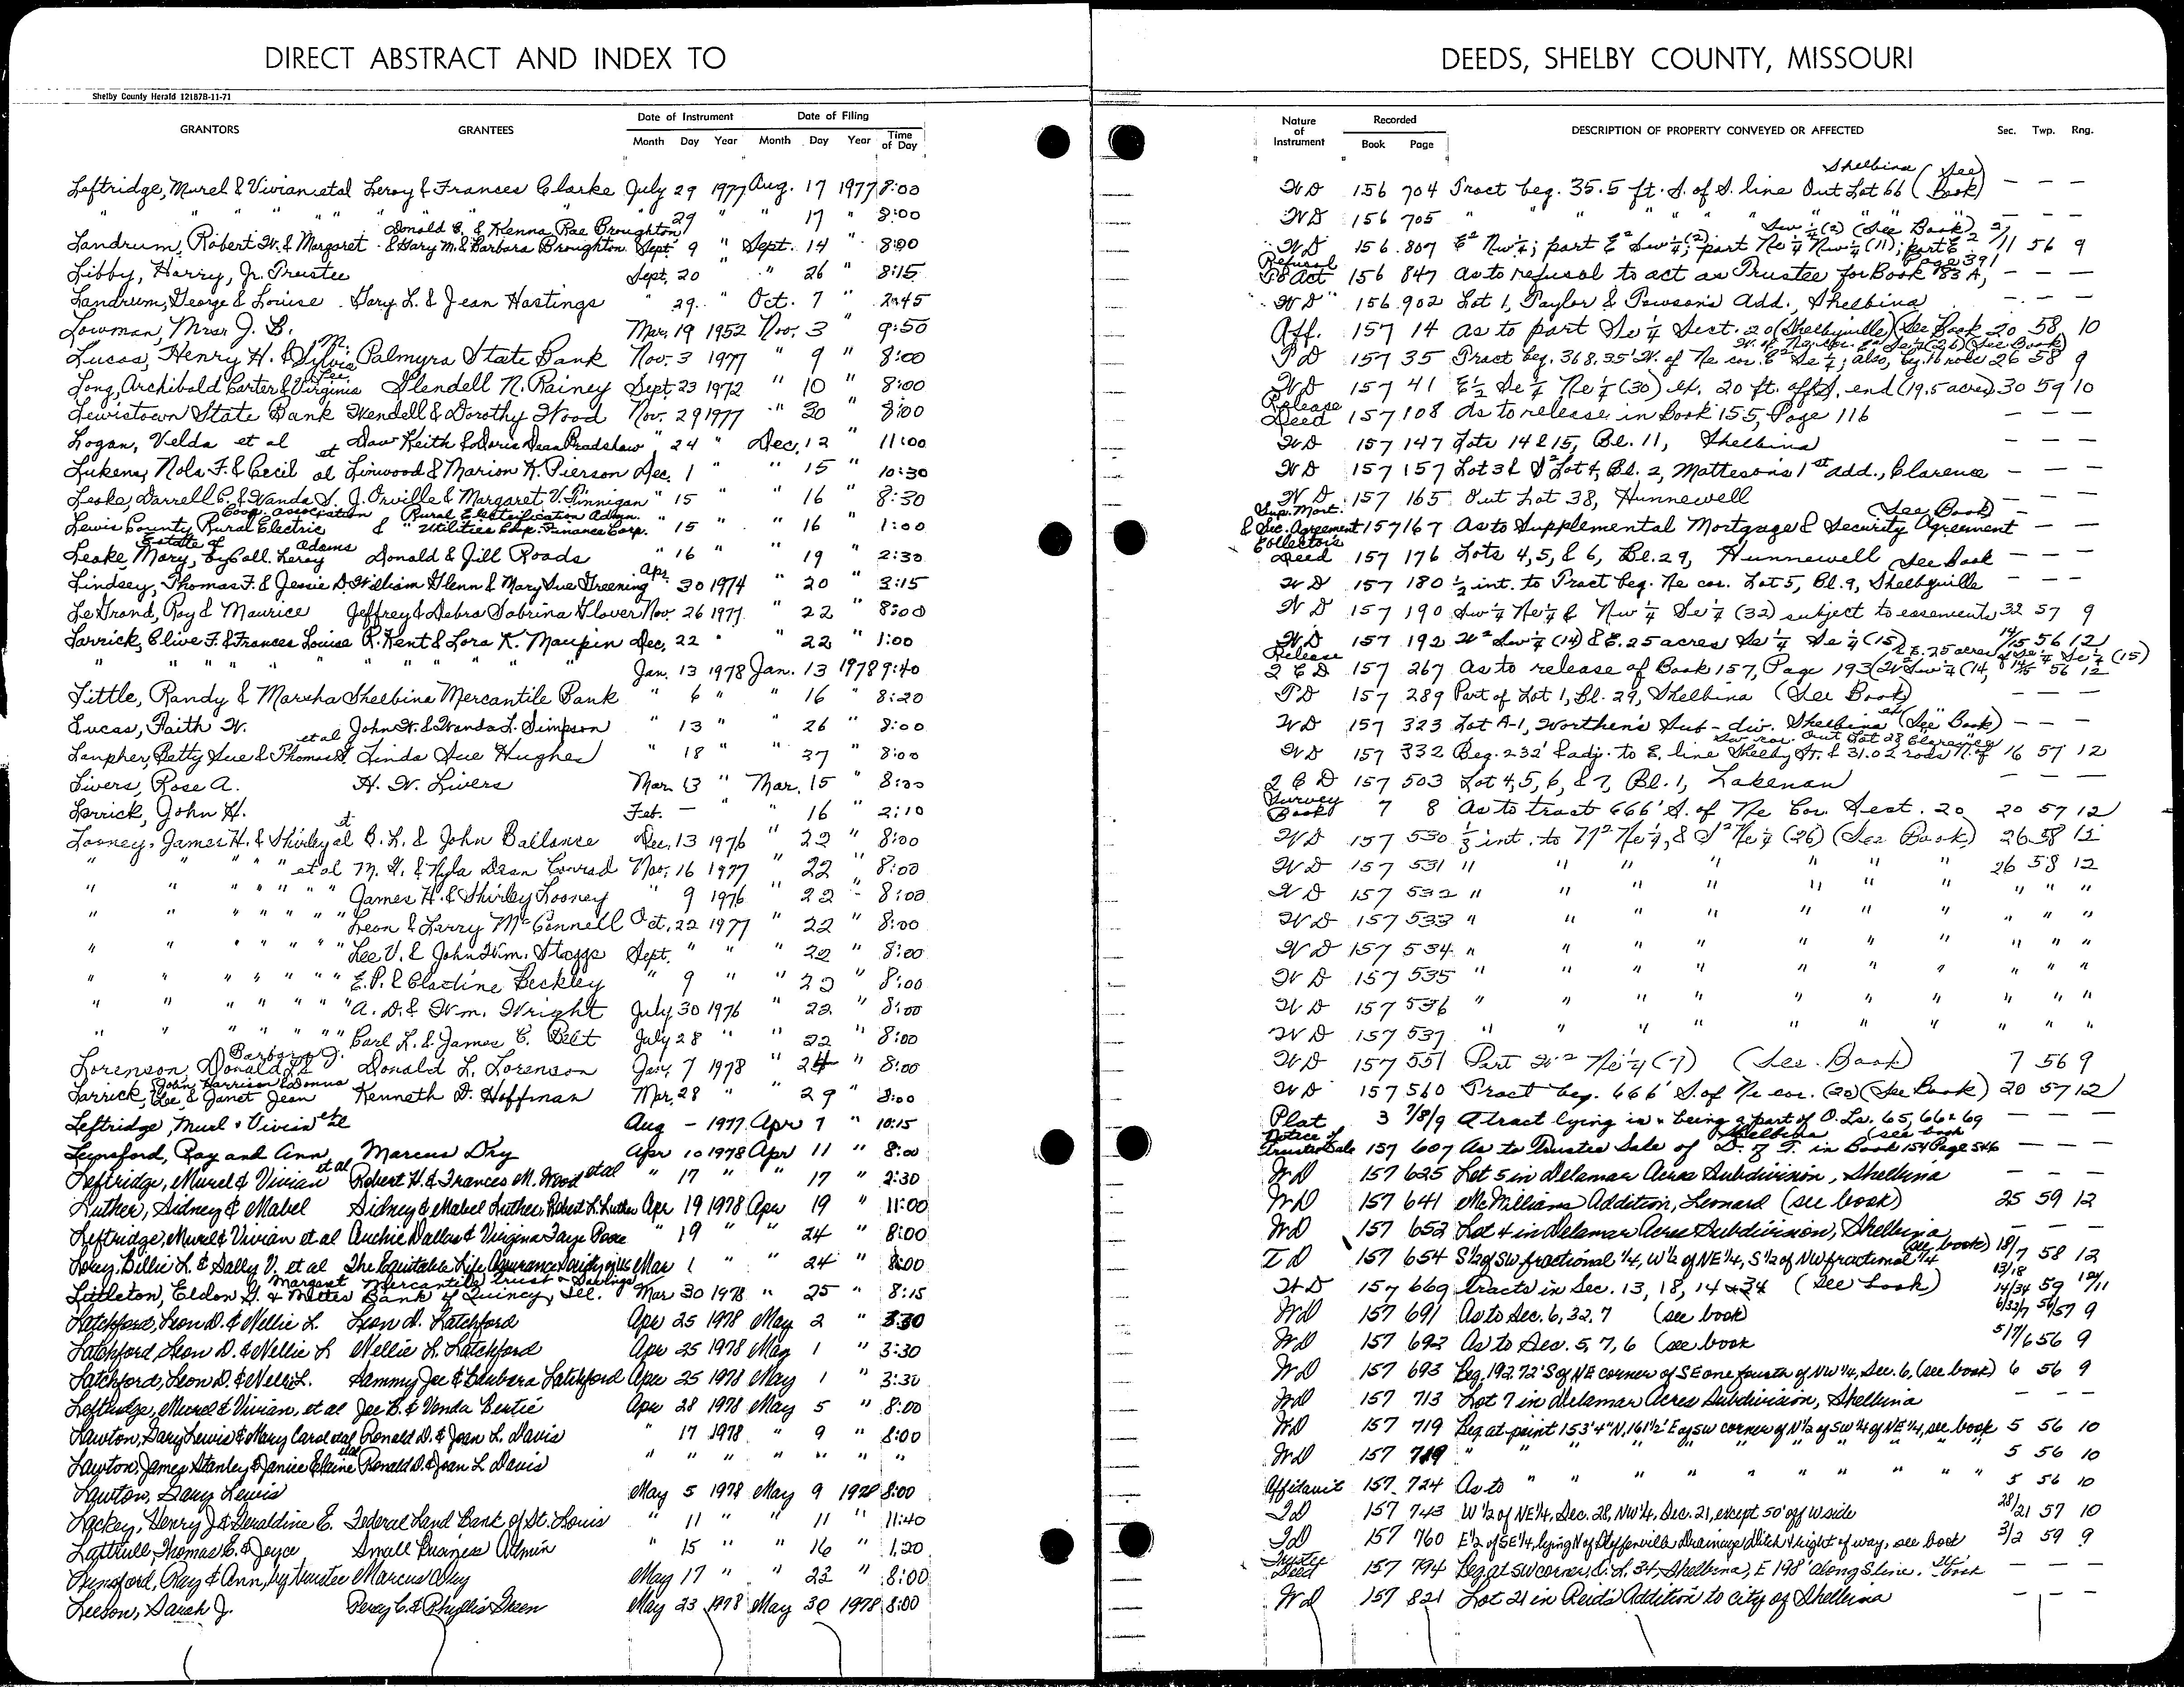 DIRECT ABSTRACT AND INDEX TO
DEEDS, SHELBY COUNTY, MISSOURI
Shelby County Herald 12187B-11-71
GRANTORS GRANTEES Date of Instrument Month Day Year Date of Filing Month Day Year Time of Day Nature of Instrument Recorded Book Page DESCRIPTION OF PROPERTY CONVEYED OR AFFECTED Sec. Twp. Rng.
Leftridge, Murel & Vivian et al Leroy & Frances Clarke July 29 1977 Aug. 17 1977 8:00 WD 156 704 Tract beg. 35.5 ft. S. of S. line Out Lot 66 Shelbina (See Book) — — —
" " " " " " " 29 " " 17 " 8:00 WD 156 705 " " " " " " " — — —
Landrum, Robert W. & Margaret Donald E. & Kenna Rae Broughton & Gary M. & Barbara Broughton Sept. 9 " Sept. 14 " 8:00 WD 156 807 E² Nw¼; part E² Sw¼(2); part Ne¼ Nw¼ (11); part E² Sw¼(2) (See Book) 2/11 56 9
Libby, Harry, Jr. Trustee Sept. 20 " 26 " 8:15 Refusal To Act 156 847 As to refusal to act as Trustee for Book 183 A, Page 391 — — —
Landrum, George & Louise Gary L. & Jean Hastings " 29 " Oct. 7 " 2:45 WD 156 902 Lot 1, Taylor & Towson's Add., Shelbina — — —
Lowman, Mrs. J. B. Mar. 19 1952 Nov. 3 " 9:50 Aff. 157 14 As to part Se¼ Sect. 20 (Shelbyville) (See Book 20 58 10
Lucas, Henry H. & Sylvia M. Palmyra State Bank Nov. 3 1977 " 9 " 8:00 TD 157 35 Tract beg. 368.35' W. of Ne cor. E² Se¼; also, beg. 16 rods 26 58 9
Long, Archibald Carter & Virginia Lee Glendell N. Rainey Sept. 23 1972 " 10 " 8:00 WD 157 41 E½ Se¼ Ne¼ (30) ex. 20 ft. off S. end (19.5 acres) 30 59 10
Lewistown State Bank Wendell & Dorothy Wood Nov. 29 1977 " 30 " 8:00 Release Deed 157 108 As to release in Book 155, Page 116 — — —
Logan, Velda et al Daw Keith & Doris Dean Bradshaw " 24 " Dec. 12 " 11:00 WD 157 147 Lots 14 & 15, Bl. 11, Shelbina — — —
Lukens, Nola F. & Cecil et al Linwood & Marion K. Pierson Dec. 1 " " 15 " 10:30 WD 157 157 Lot 3 & S² Lot 4, Bl. 2, Matteson's 1st add., Clarence — — —
Leake, Darrell C. & Wanda S. J. Orville & Margaret V. Finnigan " 15 " 16 " 8:30 WD 157 165 Out Lot 38, Hunnewell — — —
Lewis County Rural Electric Coop. association Rural Electrification Admn. & " Utilities Coop. Finance Corp. " 15 " " 16 " 1:00 Sup. Mort. & Sec. Agreement 157 167 As to Supplemental Mortgage & Security Agreement (See Book) — — —
Leake, Mary, Estate of by Coll. Leroy Adams Donald & Jill Roads " 16 " " 19 " 2:30 Collector's Deed 157 176 Lots 4, 5, & 6, Bl. 29, Hunnewell See Book — — —
Lindsey, Thomas F. & Jessie D. William Glenn & Mary Sue Greening Apr. 30 1974 " 20 " 3:15 WD 157 180 ½ int. to Tract beg. Ne cor. Lot 5, Bl. 9, Shelbyville — — —
LeGrand, Roy & Maurice Jeffrey & Debra Sabrina Glover Nov. 26 1977 " 22 " 8:00 WD 157 190 Sw¼ Ne¼ & Nw¼ Se¼ (32) subject to easements 32 57 9
Larrick, Clive F. & Frances Louise R. Kent & Lora K. Maupin Dec. 22 " " 22 " 1:00 WD 157 192 W² Sw¼ (14) & E. 25 acres Se¼ Se¼ (15) 14/15 56 12
" " " " " " " " Jan. 13 1978 Jan. 13 1978 9:40 Release QCD 157 267 As to release of Book 157, Page 193 (W² Sw¼ (14) & E. 25 acres Se¼ Se¼ (15) 14/15 56 12
Little, Randy & Marsha Shelbina Mercantile Bank " 6 " " 16 " 8:20 TD 157 289 Part of Lot 1, Bl. 29, Shelbina (See Book) — — —
Lucas, Faith W. John W. & Wanda L. Simpson " 13 " " 26 " 8:00 WD 157 323 Lot A-1, Worthen's Sub-div. Shelbina (See Book) — — —
Lanpher, Betty Sue & Thomas et al Linda Sue Hughes " 18 " " 27 " 8:00 WD 157 332 Beg. 232' & adj. to E. line Shelby St. & 31.02 rods N. of Sw cor. Out Lot 28 Clarence 16 57 12
Livers, Rose A. H. W. Livers Mar. 13 " Mar. 15 " 8:00 QCD 157 503 Lot 4, 5, 6, & 7, Bl. 1, Lakenan — — —
Larrick, John H. Feb. — " " 16 " 2:10 Survey Book 7 8 As to tract 666' S. of Ne Cor. Sect. 20 20 57 12
Looney, James H. & Shirley et al B. L. & John Ballance Dec. 13 1976 " 22 " 8:00 WD 157 530 ⅓ int. to N² Ne¼, & S² Ne¼ (26) (See Book) 26 58 12
" " " " " et al M. G. & Nyla Dean Conrad Nov. 16 1977 22 " 8:00 WD 157 531 " " " " " " " 26 58 12
" " " " " " " James H. & Shirley Looney " 9 1976 " 22 " 8:00 WD 157 532 " " " " " " " " " "
" " " " " " " Leon & Larry McConnell Oct. 22 1977 " 22 " 8:00 WD 157 533 " " " " " " " " " "
" " " " " " " Lee V. & John Wm. Staggs Sept. " " " 22 " 8:00 WD 157 534 " " " " " " " " " "
" " " " " " " E. P. & Claudine Beckley " 9 " " 22 " 8:00 WD 157 535 " " " " " " " " " "
" " " " " " " A. D. & Wm. Wright July 30 1976 " 22 " 8:00 WD 157 536 " " " " " " " " " "
" " " " " " " Carl L. & James C. Belt July 28 " " 22 " 8:00 WD 157 537 " " " " " " " " " "
Lorenson, Donald L. & Barbara J. Donald L. Lorenson Jan. 7 1978 " 24 " 8:00 WD 157 551 Part W² Ne¼ (7) (See Book) 7 56 9
Larrick, John Harrison & Donna Lee, & Janet Jean Kenneth D. Hoffman Mar. 28 " " 29 " 8:00 WD 157 560 Tract beg. 666' S. of Ne cor. (20) (See Book) 20 57 12
Leftridge, Murl & Vivian et al Aug — 1977 Apr 7 " 10:15 Plat 3 7/8/9 A tract lying in & being a part of O. Ls. 65, 66 & 69 Shelbina (see book — — —
Lunsford, Ray and Ann Marcus Dry Apr 10 1978 Apr 11 " 8:00 Notice of Trustee Sale 157 607 As to Trustee Sale of D. of T. in Book 154 Page 546 — — —
Leftridge, Murel & Vivian et al Robert H. & Frances M. Wood et al " 17 " " 17 " 2:30 WD 157 625 Lot 5 in Delamar Acres Subdivision, Shelbina — — —
Luther, Sidney & Mabel Sidney & Mabel Luther, Robert L. Luther Apr 19 1978 Apr 19 " 11:00 WD 157 641 McWilliams Addition, Leonard (see book) 25 59 12
Leftridge, Murel & Vivian et al Auchie Dallas & Virginia Faye Poore " 19 " " 24 " 8:00 WD 157 652 Lot 4 in Delamar Acres Subdivision, Shelbina — — —
Louy, Billie L. & Sally V. et al The Equitable Life Assurance Society of US Mar 1 " " 24 " 8:00 TD 157 654 S½ of SW fractional ¼, W½ of NE¼, S½ of NW fractional ¼ (see book) 18/7 58 12
Littleton, Eldon G. & Margaret Mercantile Trust & Savings Bank of Quincy, Ill. Mar 30 1978 " 25 " 8:15 WD 157 669 Tracts in Sec. 13, 18, 14 & 34 (see book) 13/18 14/34 59 12/11
Latchford, Leon D. & Nellie L. Leon D. Latchford Apr 25 1978 May 2 " 3:30 WD 157 691 As to Sec. 6, 32, 7 (see book) 6/32/7 56/57 9
Latchford, Leon D. & Nellie L Nellie L. Latchford Apr 25 1978 May 1 " 3:30 WD 157 692 As to Sec. 5, 7, 6 (see book 5/7/6 56 9
Latchford, Leon D. & Nellie L. Sammy Joe & Barbara Latchford Apr 25 1978 May 1 " 3:30 WD 157 693 Beg. 192.72' S of NE corner of SE one fourth of NW ¼, Sec. 6, (see book) 6 56 9
Leftridge, Murel & Vivian, et al Joe B. & Vonda Bertie Apr 28 1978 May 5 " 8:00 WD 157 713 Lot 7 in Delamar Acres Subdivision, Shelbina — — —
Lawton, Gary Lewis & Mary Carol et al Ronald D. & Joan L. Davis " 17 1978 " 9 " 8:00 WD 157 719 Beg at point 153'4" N, 161½' E of SW corner of N½ of SW¼ of NE¼, see book 5 56 10
Lawton, James Stanley & Janice Elaine et al Ronald D. & Joan L Davis " " " " " " " WD 157 719 " " " " " " " " " 5 56 10
Lawton, Gary Lewis May 5 1978 May 9 1978 8:00 Affidavit 157 724 As to " " " " " " " " 5 56 10
Lackey, Henry J. & Geraldine E. Federal Land Bank of St. Louis " 11 " " 11 " 11:40 TD 157 743 W½ of NE¼, Sec. 28, NW¼, Sec. 21, except 50' off W side 28/21 57 10
Luttrull, Thomas E. & Joyce Small Business Admin " 15 " " 16 " 1:20 TD 157 760 E½ of SE¼, lying N of Steffenville Drainage Ditch & right of way, see book 3/2 59 9
Lunsford, Ray & Ann, by trustee Marcus Dry May 17 " " 22 " 8:00 Trustee Deed 157 794 Beg at SW corner, O. L. 34, Shelbina, E 198' along S line. see book — — —
Leeson, Sarah J. Percy C. & Phyllis Green May 23 1978 May 30 1978 8:00 WD 157 821 Lot 21 in Reids Addition to city of Shelbina — — —